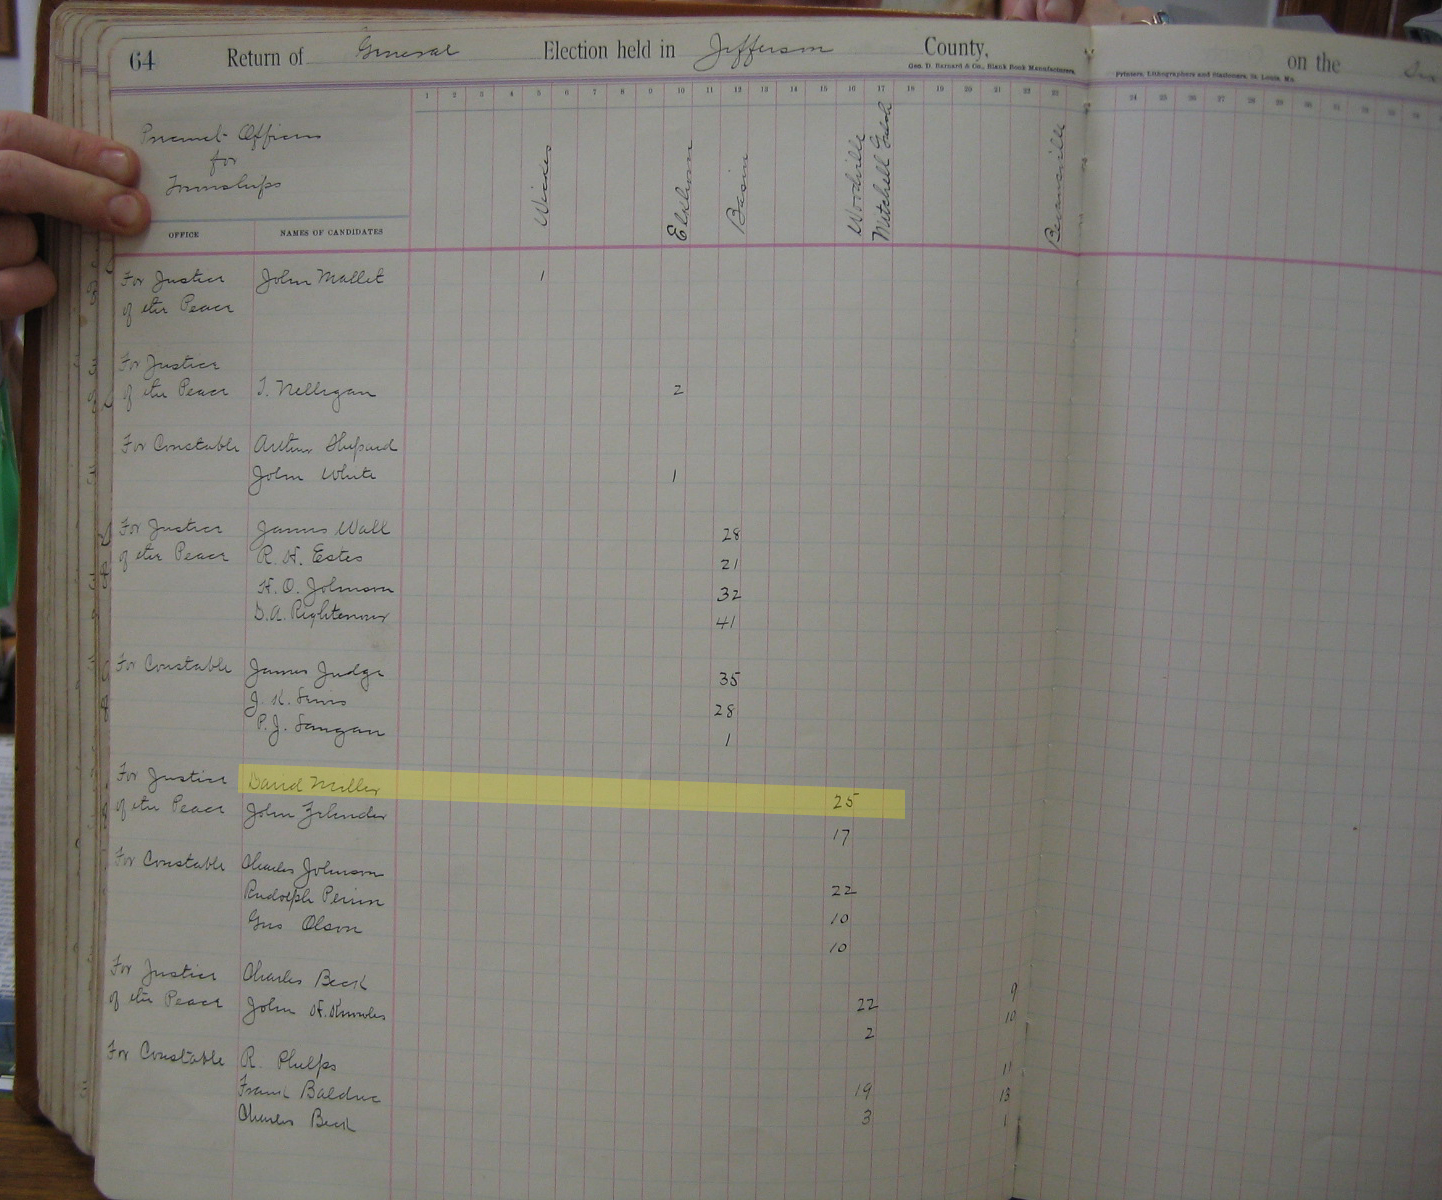 64 Return of General Election held in Jefferson County, on the
Geo. D. Barnard & Co., Blank Book Manufacturers, Printers, Lithographers and Stationers, St. Louis, Mo.
1 2 3 4 5 6 7 8 9 10 11 12 13 14 15 16 17 18 19 20 21 22 23 24 25 26 27 28 29
Precinct Officers
for
Townships
Wickes
Elkhorn
Basin
Woodville
Mitchell Gulch
Bernardville
OFFICE NAMES OF CANDIDATES
For Justice John Mallet 1
of the Peace
For Justice
of the Peace T. Nelligan 2
For Constable Arthur Shepard
John White 1
For Justice James Wall 28
of the Peace R. H. Estes 21
H. O. Johnson 32
G. A. Rightenour 41
For Constable James Judge 35
J. K. Lewis 28
P. J. Langan 1
For Justice David Miller 25
of the Peace John 17
For Constable Charles Johnson 22
Rudolph Perinn 10
Gus Olson 10
For Justice Charles Beck 22 9
of the Peace John H. Knowles 2 10
For Constable R. Phelps 11
Frank Balduc 19 13
Charles Beck 3 1